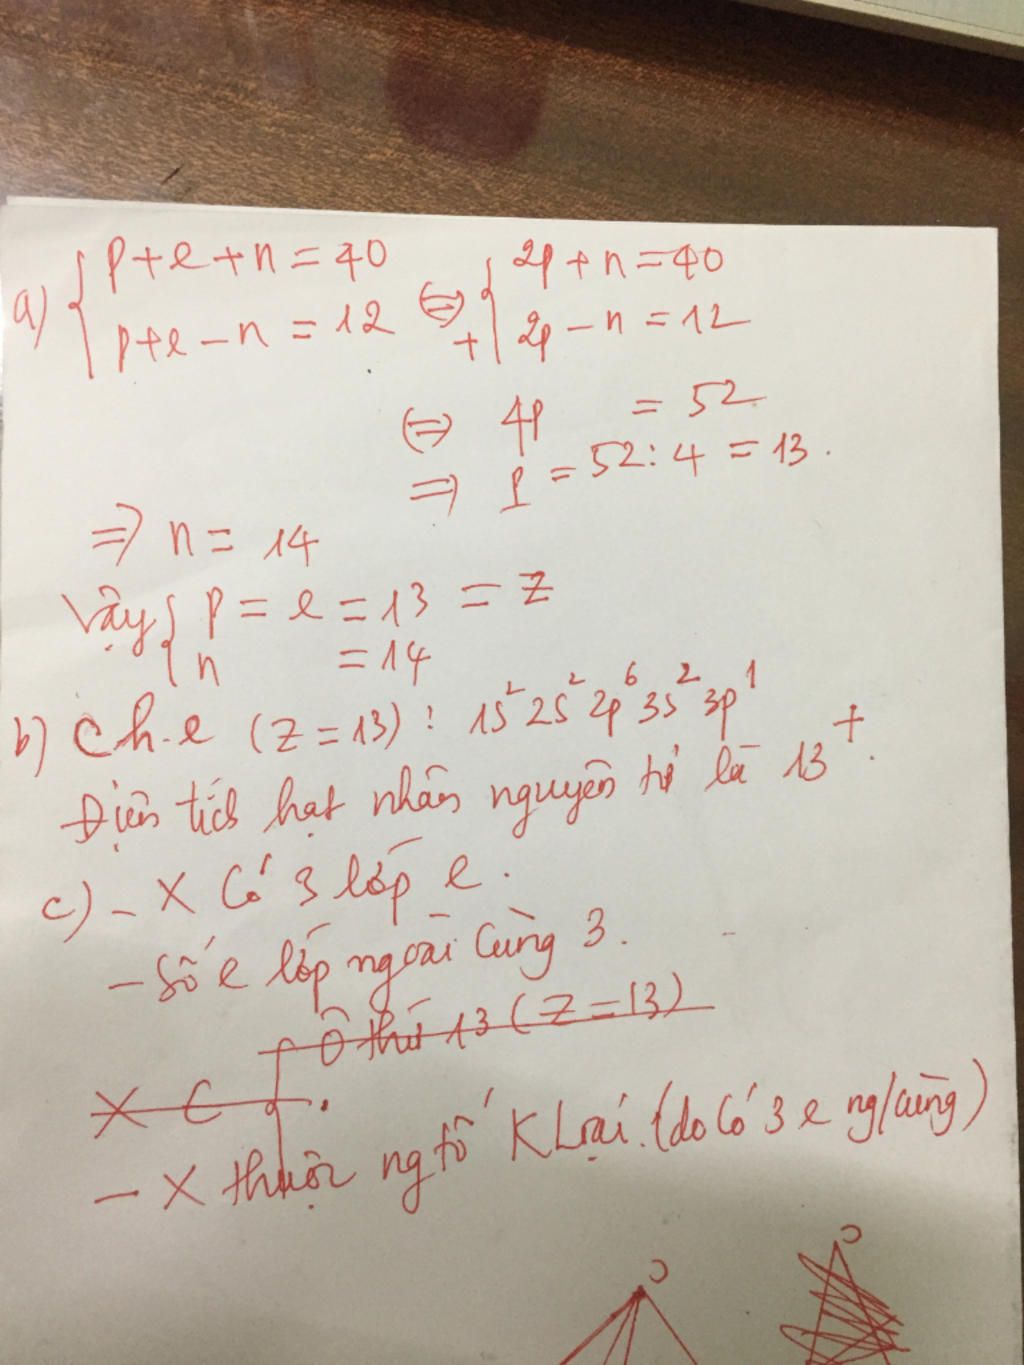 a) { p+e+n = 40 ⇔ { 2p+n = 40
p+e-n = 12 + 2p-n = 12
⇔ 4p = 52
⇒ p = 52:4 = 13.
⇒ n = 14
Vậy { p = e = 13 = Z
n = 14
b) Ch.e (Z=13): 1s² 2s² 2p⁶ 3s² 3p¹
Điện tích hạt nhân nguyên tử là 13⁺.
c) - X có 3 lớp e.
- Số e lớp ngoài cùng 3.
Ô thứ 13 (Z=13)
X C
- X thuộc ng tố K Loại. (do có 3 e ng/cùng)